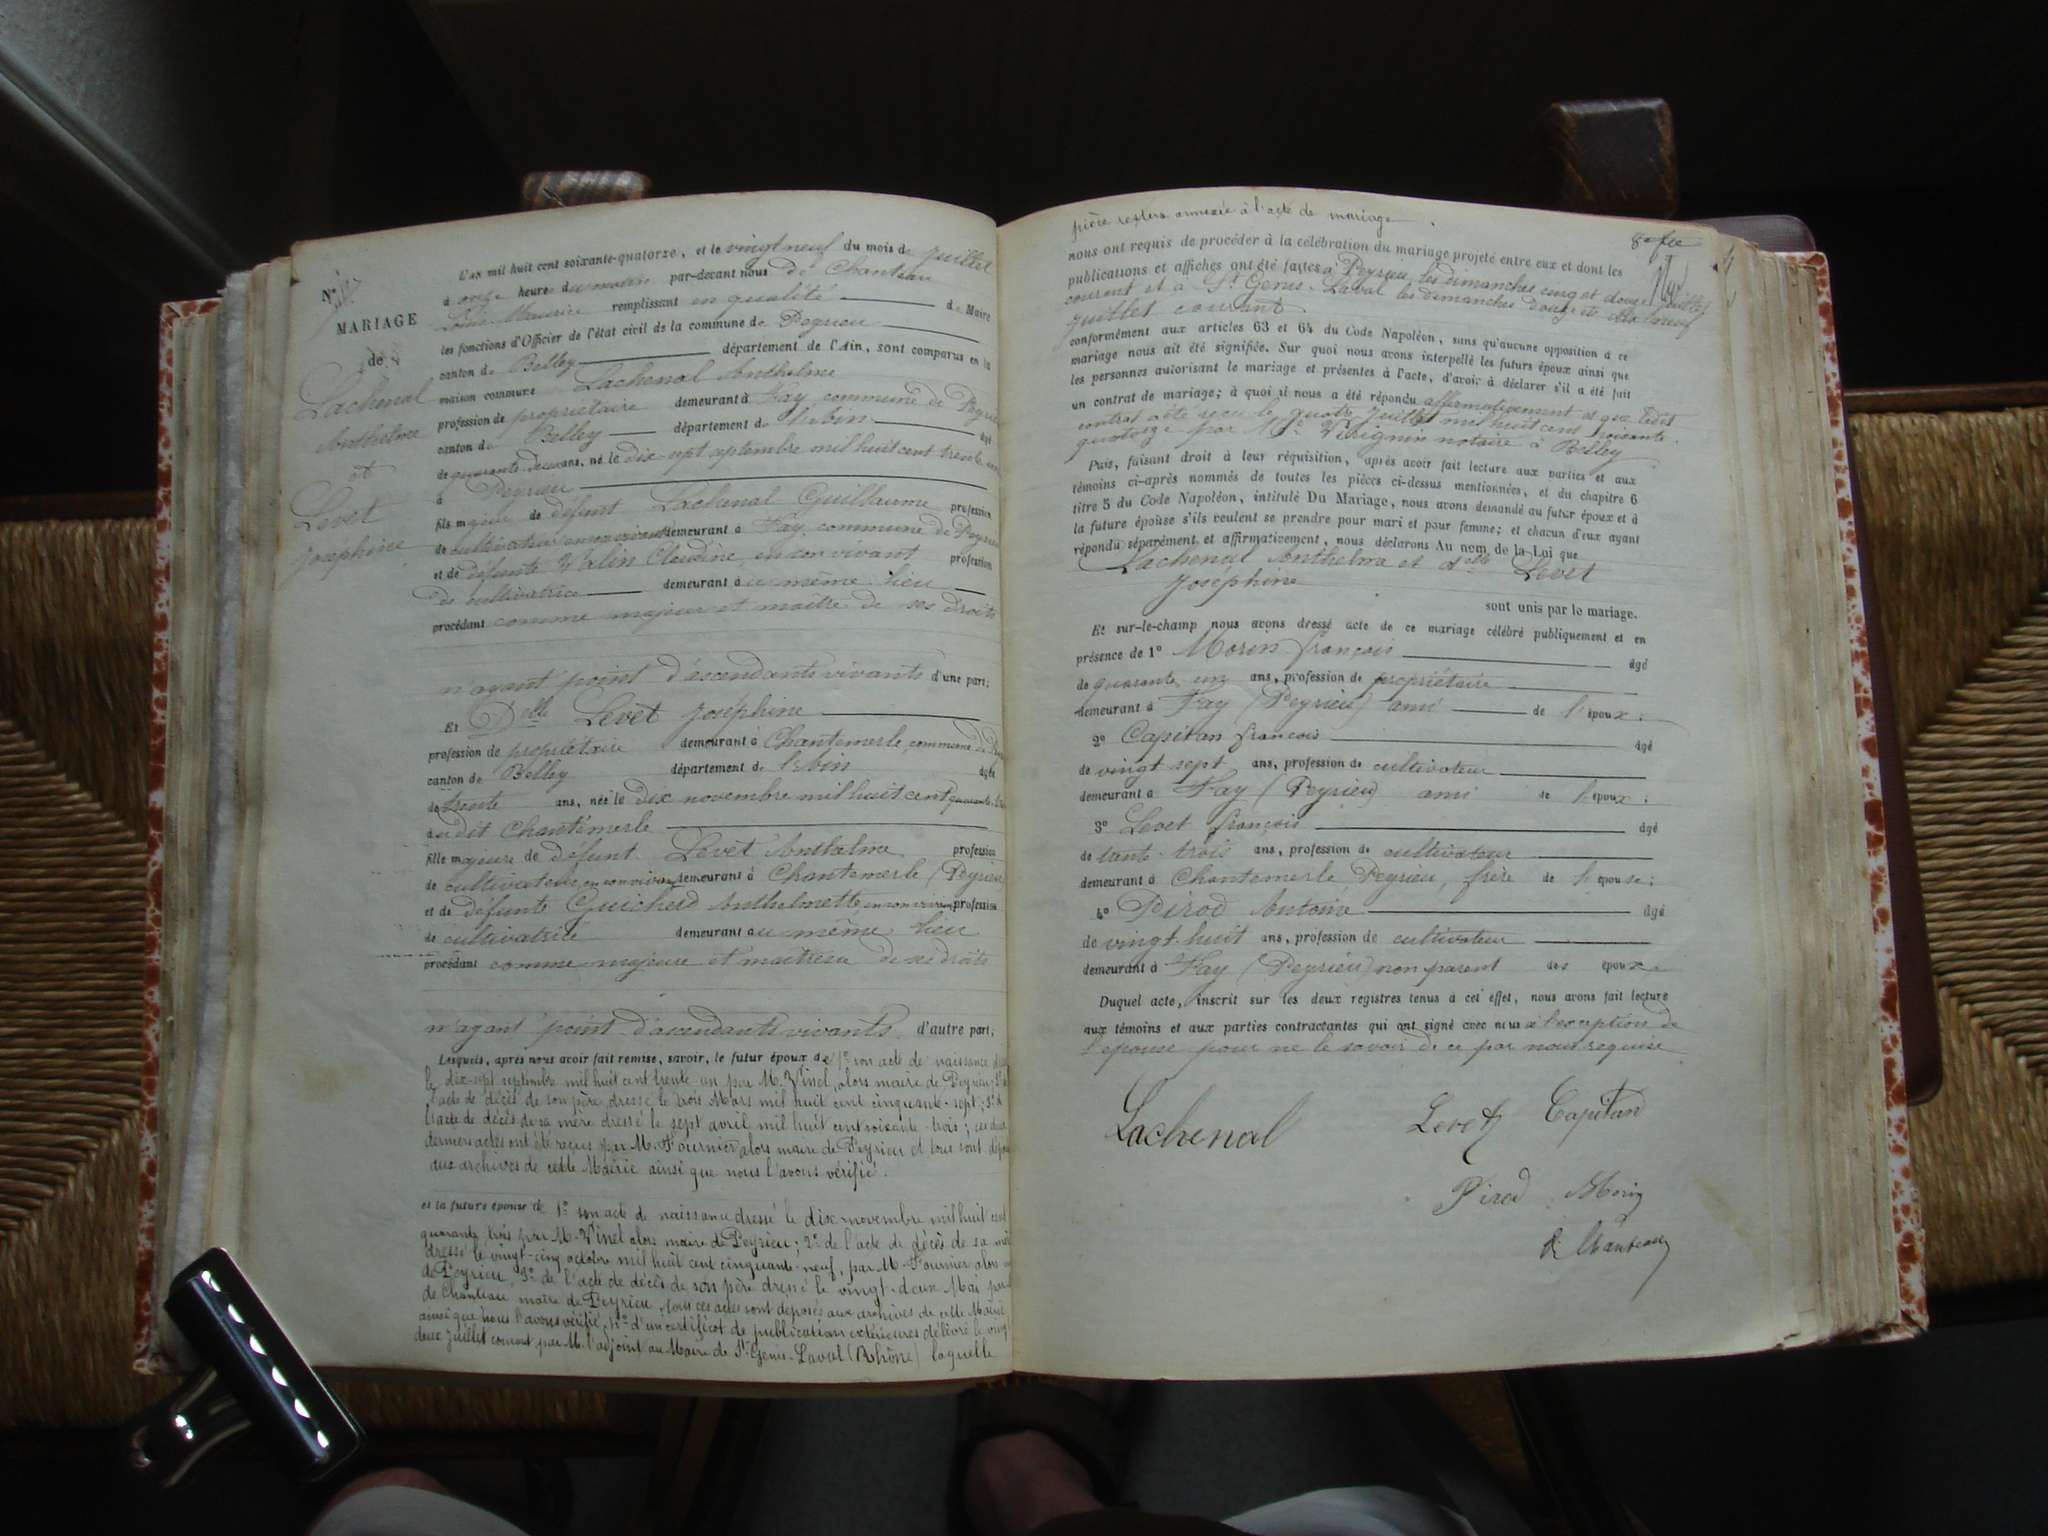 N°
MARIAGE
de
Lachenal
Anthelme
et
Levet
Joséphine
L'an mil huit cent soixante-quatorze, et le vingt neuf du mois de Juillet
à onze heure du matin par-devant nous de Chanteau
Louis Maurice remplissant en qualité de Maire
les fonctions d'Officier de l'état civil de la commune de Peyrieu
canton de Belley département de l'Ain, sont comparus en la
maison commune Lachenal Anthelme
profession de propriétaire demeurant à Fay commune de Peyrieu
canton de Belley département de l'Ain âgé
de quarante deux ans, né le dix-sept septembre mil huit cent trente un
à Peyrieu
fils majeur de défunt Lachenal Guillaume profession
de cultivateur en son vivant demeurant à Fay commune de Peyrieu
et de défunte Claudine, en son vivant profession
de cultivatrice demeurant au même lieu
procédant comme majeur et maître de ses droits
n'ayant point d'ascendants vivants d'une part;
Et Delle Levet Joséphine
profession de propriétaire demeurant à Chantemerle, commune de
canton de Belley département de l'Ain âgée
de trente ans, née le dix novembre mil huit cent quarante
au dit Chantemerle
fille majeure de défunt Levet Anthelme profession
de cultivateur, en son vivant demeurant à Chantemerle (Peyrieu)
et de défunte Guicherd Anthelmette en son vivant profession
de cultivatrice demeurant au même lieu
procédant comme majeure et maitresse de ses droits
n'ayant point d'ascendants vivants. d'autre part;
Lesquels, après nous avoir fait remise, savoir, le futur époux de 1° son acte de naissance
le dix-sept septembre mil huit cent trente un par M. Vinel, alors maire de Peyrieu; 2° de
l'acte de décès de son père dressé le trois Mars mil huit cent cinquante-sept; 3° de
l'acte de décès de sa mère dressé le sept avril mil huit cent soixante-trois; ces deux
derniers actes ont été reçus par M. Fournier alors maire de Peyrieu et tous sont déposés
aux archives de cette Mairie ainsi que nous l'avons vérifié.
et la future épouse de 1° son acte de naissance dressé le dix novembre mil huit cent
quarante trois par M. Vinel alors maire de Peyrieu; 2° de l'acte de décès de sa mère
dressé le vingt-cinq octobre mil huit cent cinquante-neuf, par M. Fournier alors
de Peyrieu, 3° de l'acte de décès de son père dressé le vingt-deux Mai par
de Chanteau maire de Peyrieu, tous ces actes sont déposés aux archives de cette Mairie
ainsi que nous l'avons vérifié, 4° d'un certificat de publication extérieures délivré le vingt
deux Juillet courant par M. l'adjoint au Maire de St Genis-Laval (Rhône) laquelle
pièce restera annexée à l'acte de mariage.
nous ont requis de procéder à la célébration du mariage projeté entre eux et dont les
publications et affiches ont été faites à Peyrieu les dimanches cinq et douze Juillet
courant et à St Genis-Laval les dimanches douze et dix neuf
Juillet courant
conformément aux articles 63 et 64 du Code Napoléon, sans qu'aucune opposition à ce
mariage nous ait été signifiée. Sur quoi nous avons interpellé les futurs époux ainsi que
les personnes autorisant le mariage et présentes à l'acte, d'avoir à déclarer s'il a été fait
un contrat de mariage; à quoi il nous a été répondu affirmativement et que ledit
contrat a été reçu le quatre Juillet mil huit cent soixante-
quatorze par Me notaire à Belley
Puis, faisant droit à leur réquisition, après avoir fait lecture aux parties et aux
témoins ci-après nommés de toutes les pièces ci-dessus mentionnées, et du chapitre 6
titre 5 du Code Napoléon, intitulé Du Mariage, nous avons demandé au futur époux et à
la future épouse s'ils veulent se prendre pour mari et pour femme; et chacun d'eux ayant
répondu séparément et affirmativement, nous déclarons Au nom de la Loi que
Lachenal Anthelme et delle Levet
Joséphine
sont unis par le mariage.
Et sur-le-champ nous avons dressé acte de ce mariage célébré publiquement et en
présence de 1° Morin françois âgé
de quarante un ans, profession de propriétaire
demeurant à Fay (Peyrieu) ami de l'époux;
2° Capitan françois âgé
de vingt sept ans, profession de cultivateur
demeurant à Fay (Peyrieu) ami de l'époux;
3° Levet françois âgé
de trente-trois ans, profession de cultivateur
demeurant à Chantemerle Peyrieu, frère de l'épouse;
4° Pirod Antoine âgé
de vingt-huit ans, profession de cultivateur
demeurant à Fay (Peyrieu) non parent des époux.
Duquel acte, inscrit sur les deux registres tenus à cet effet, nous avons fait lecture
aux témoins et aux parties contractantes qui ont signé avec nous à l'exception de
l'épouse pour ne le savoir de ce par nous requise
Lachenal Levet Capitan
Pirod Morin
de Chanteau